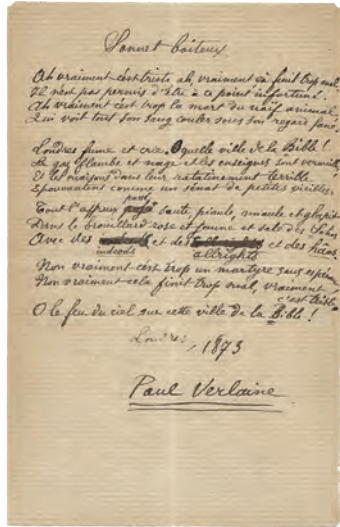 Sonnet boiteux
Ah vraiment c'est triste ah, vraiment ça finit trop mal.
Il n'est pas permis d'être à ce point infortuné.
Ah vraiment c'est trop la mort du naïf animal
Qui voit tout son sang couler sous son regard fané.
Londres fume et crie. O quelle ville de la Bible !
Le gaz flambe et nage et les enseignes sont vermeil
Et les maisons dans leur ratatinement terrible
Epouvantent comme un sénat de petites vieilles.
Tout l'affreux passé saute, piaule, miaule et glapit
Dans le brouillard rose et jaune et sale des Sohos
Avec des indeeds et des allrights et des hâos
Non vraiment c'est trop un martyre sans espéran
Non vraiment cela finit trop mal, vraiment
c'est triste
O le feu du ciel sur cette ville de la Bible !
Londres, 1873
Paul Verlaine